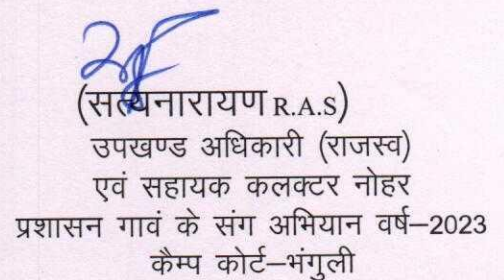 (सत्यनारायण R.A.S)
उपखण्ड अधिकारी (राजस्व)
एवं सहायक कलक्टर नोहर
प्रशासन गावं के संग अभियान वर्ष–2023
कैम्प कोर्ट–भंगुली